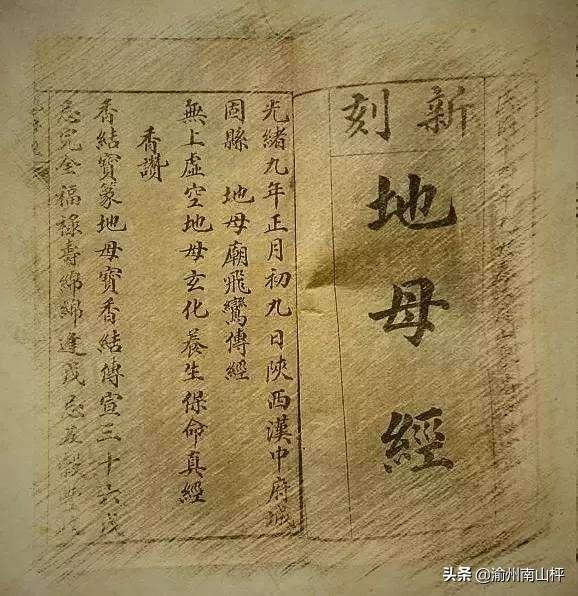 新刻
地母經
光緒九年正月初九日陝西漢中府城
固縣 地母廟飛鸞傳經
無上虛空地母玄化養生保命真經
香讚
香結寶篆地母寶香結傳宣三十六戊
忌完全福祿壽綿綿逢戊忌五穀豐
头条 @渝州南山秤